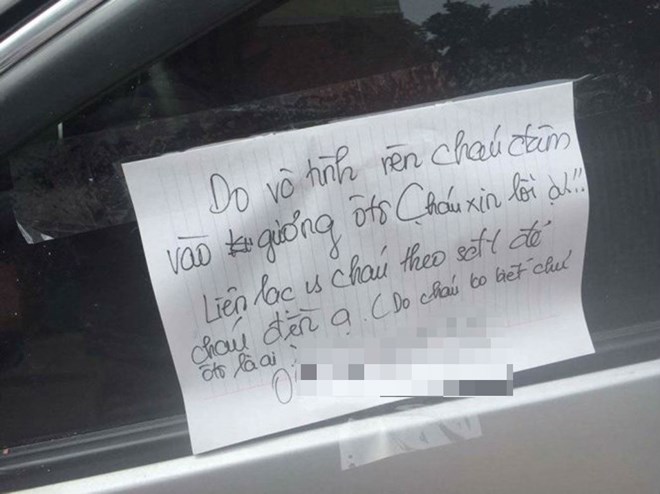 Do vô tình nên cháu đâm
vào gương ôtô Cháu xin lỗi ạ!!
Liên lạc vs cháu theo sđt để
cháu đền ạ. (Do cháu ko biết chủ
ôtô là ai